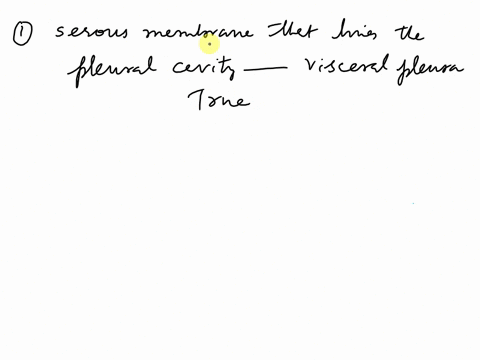 ① serous membrane that lines the
pleural cavity — visceral pleura
True